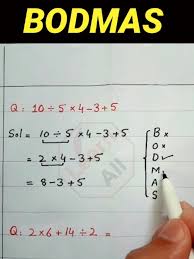 BODMAS
Q: 10 ÷ 5 × 4 - 3 + 5
Sol = 10 ÷ 5 × 4 - 3 + 5
= 2 × 4 - 3 + 5
= 8 - 3 + 5
B ×
O ×
D ✓
M
A
S
All
Q: 2 × 6 + 14 ÷ 2 =